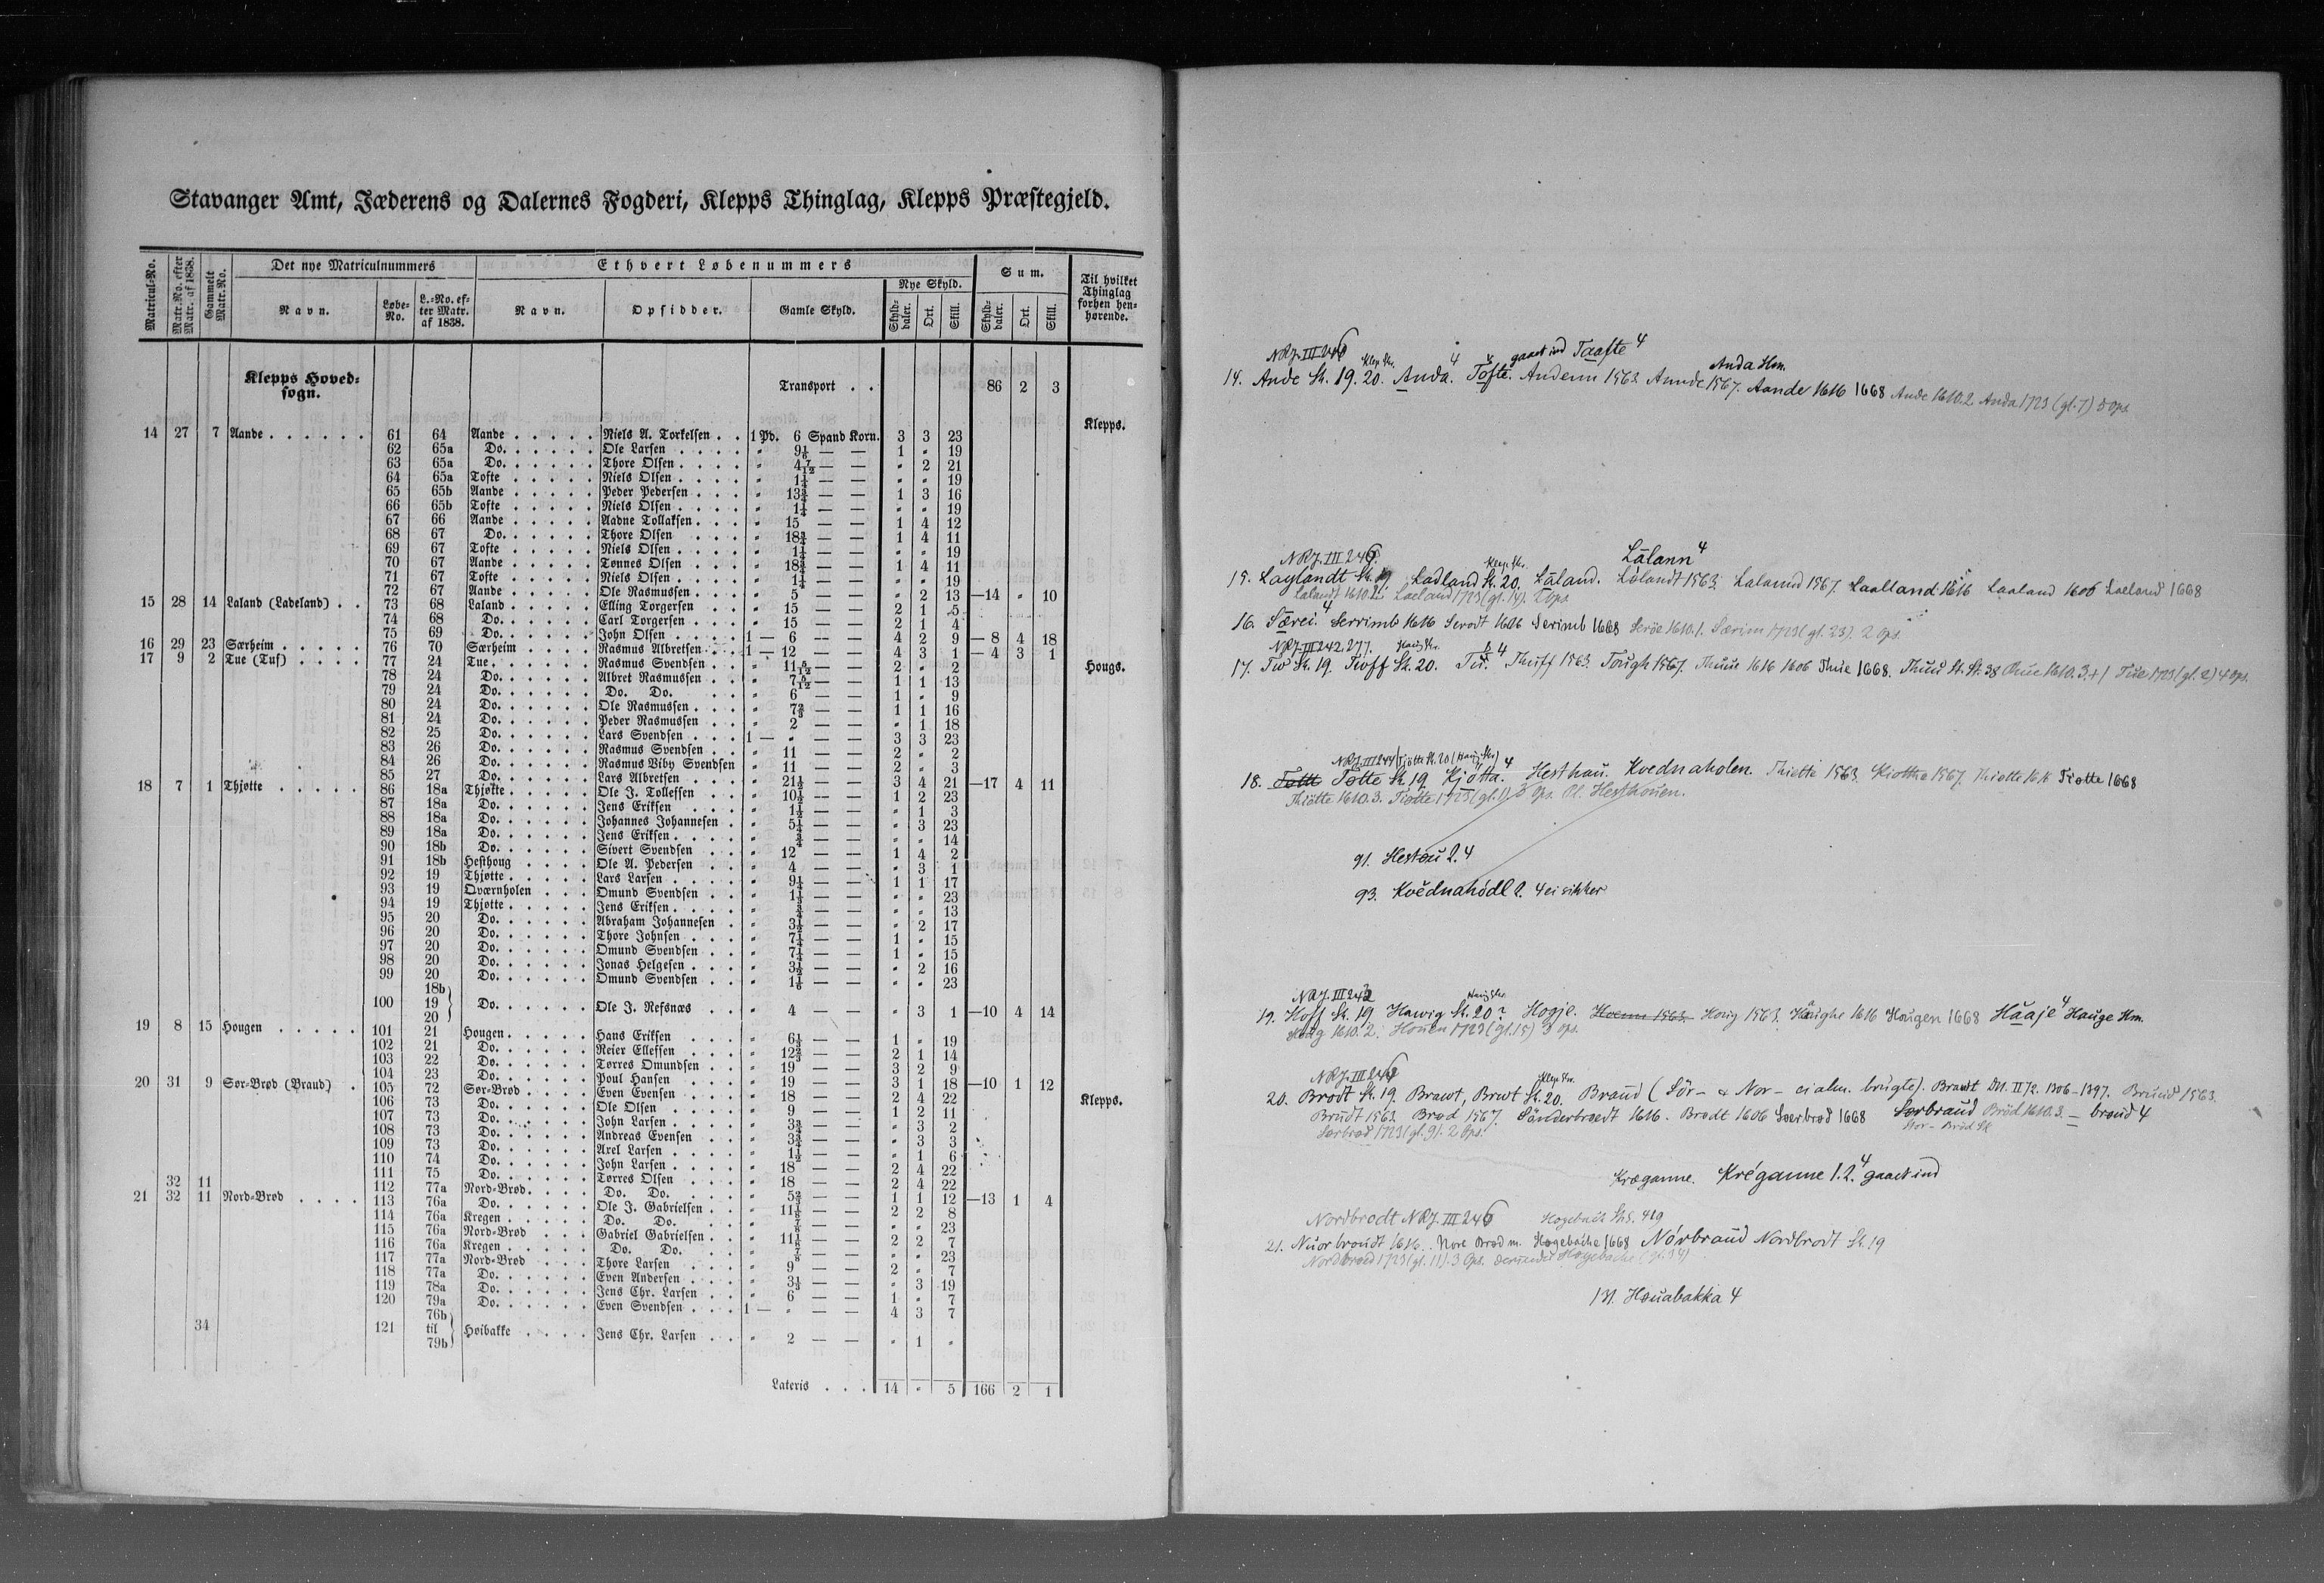 Stavanger Amt, Jæderens og Dalernes Fogderi, Klepps Thinglag, Klepps Præstegjeld.
Matricul-No. Matr.-No. efter Matr. af 1838. Gammelt Matr.-No. Det nye Matriculnummers Ethvert Løbenummers Sum. Til hvilket Thinglag forhen henhørende.
Navn. Løbe-No. L.-No. efter Matr. af 1838. Navn. Opsidder. Gamle Skyld. Nye Skyld. Skylddaler. Ort. Skill. Skylddaler. Ort. Skill.
Klepps Hovedsogn. Transport . . 86 2 3
Klepps.
14 27 7 Aande . . . . . . 61 64 Aande . . . . . Niels A. Torkelsen . . 1 Pd. 6 Spand Korn. 3 3 23
62 65a Do. . . . . . Ole Larsen . . . . " 9 1/6 — — 1 " 19
63 65a Do. . . . . . Thore Olsen . . . . " 4 7/12 — — " 2 21
64 65a Tofte . . . . . Niels Olsen . . . . " 1 1/4 — — " " 19
65 65b Aande . . . . . Peder Pedersen . . . " 13 3/4 — — 1 3 16
66 65b Tofte . . . . . Niels Olsen . . . . " 1 1/4 — — " " 19
67 66 Aande . . . . . Aadne Tollaksen . . . " 15 — — 1 4 12
68 67 Do. . . . . . Thore Olsen . . . " 18 3/4 — — 1 4 11
69 67 Tofte . . . . . Niels Olsen . . . . " 1 1/4 — — " " 19
70 67 Aande . . . . . Tønnes Olsen . . . " 18 3/4 — — 1 4 11
71 67 Tofte . . . . . Niels Olsen . . . . " 1 1/4 — — " " 19
72 67 Aande . . . . . Ole Rasmussen . . . " 5 — — " 2 13 —14 " 10
15 28 14 Laland (Ladeland) . . 73 68 Laland . . . . . Elling Torgersen . . . " 15 — — 2 1 5
74 68 Do. . . . . . Carl Torgersen . . . " 15 — — 2 1 4
75 69 Do. . . . . . John Olsen . . . . 1 — 6 — — 4 2 9 — 8 4 18
16 29 23 Særheim . . . . . 76 70 Særheim . . . . Rasmus Albretsen . . 1 — 12 — — 4 3 1 — 4 3 1
17 9 2 Tue (Tuf) . . . . 77 24 Tue . . . . . . Rasmus Svendsen . . " 11 5/12 — — 2 " 2 Hougs.
78 24 Do. . . . . . Albret Rasmussen . . " 7 5/12 — — 1 1 13
79 24 Do. . . . . . Do. Do. . . " 6 — — 1 " 9
80 24 Do. . . . . . Ole Rasmussen . . . " 7 2/3 — — 1 1 16
81 24 Do. . . . . . Peder Rasmussen . . " 2 — — " 1 18
82 25 Do. . . . . . Lars Svendsen . . 1 — " — — 3 3 23
83 26 Do. . . . . . Rasmus Svendsen . . " 11 — — 2 " 2
84 26 Do. . . . . . Rasmus Viby Svendsen " 11 — — 2 " 3
85 27 Do. . . . . . Lars Albretsen . . . " 21 1/2 — — 3 4 21 —17 4 11
18 7 1 Thjøtte . . . . . 86 18a Thjøtte . . . . . Ole J. Tollefsen . . . " 10 1/2 — — 1 2 23
87 18a Do. . . . . . Jens Eriksen . . . " 1 1/2 — — " 1 3
88 18a Do. . . . . . Johannes Johannesen . " 5 1/4 — — " 3 23
89 18a Do. . . . . . Jens Eriksen . . . . " 3/4 — — " " 14
90 18b Do. . . . . . Sivert Svendsen . . " 12 — — 1 4 2
91 18b Hesthoug . . . . Ole A. Pedersen . . " 4 — — " 3 1
92 19 Thjøtte . . . . . Lars Larsen . . . . " 9 1/4 — — 1 1 17
93 19 Qværnholen . . . Omund Svendsen . . " 1 1/3 — — " " 23
94 19 Thjøtte . . . . . Jens Eriksen . . . . " 3/4 — — " " 13
95 20 Do. . . . . . Abraham Johannesen . " 3 1/2 — — " 2 17
96 20 Do. . . . . . Thore Johnsen . . . " 7 1/4 — — 1 " 15
97 20 Do. . . . . . Omund Svendsen . . " 7 1/4 — — 1 " 15
98 20 Do. . . . . . Jonas Helgesen . . . " 3 1/2 — — " 2 16
99 20 Do. . . . . . Omund Svendsen . . " 1 1/6 — — " " 23
100 18b 19 20 } Do. . . . . . Ole J. Refsnæs . . " 4 — — " 3 1 —10 4 14
19 8 15 Hougen . . . . . 101 21 Hougen . . . . . Hans Eriksen . . . " 6 1/3 — — 1 " 19
102 21 Do. . . . . . Reier Ellefsen . . . " 12 2/3 — — 2 1 14
103 22 Do. . . . . . Torres Omundsen . . " 19 — — 3 2 9
104 23 Do. . . . . . Poul Hansen . . . " 19 — — 3 1 18 —10 1 12
20 31 9 Sør-Brød (Braud) . 105 72 Sør-Brød . . . . Even Evensen . . . " 18 — — 2 4 22 Klepps.
106 73 Do. . . . . . Ole Olsen . . . . " 9 — — 1 2 11
107 73 Do. . . . . . John Larsen . . . . " 3 3/4 — — " 3 2
108 73 Do. . . . . . Andreas Evensen . . " 3 3/4 — — " 3 3
109 73 Do. . . . . . Axel Larsen . . . . " 1 1/2 — — " 1 6
110 74 Do. . . . . . John Larsen . . . . " 18 — — 2 4 22
111 75 Do. . . . . . Torres Olsen . . . " 18 — — 2 4 22
32 11 112 77a Nord-Brød . . . . Do. Do. . . " 5 2/3 — — 1 1 12 —13 1 4
21 32 11 Nord-Brød . . . . 113 76a Do. . . . . . Ole J. Gabrielsen . . " 11 1/8 — — 2 2 8
114 76a Kregen . . . . . Do. Do. . . " 7/8 — — " " 23
115 76a Nord-Brød . . . Gabriel Gabrielsen . . " 11 1/8 — — 2 2 7
116 76a Kregen . . . . . Do. Do. . . " 7/8 — — " " 23
117 77a Nord-Brød . . . Thore Larsen . . . " 9 — — 2 " 7
118 77a Do. . . . . . Even Andersen . . . " 3 1/3 — — " 3 19
119 78a Do. . . . . . Jens Chr. Larsen . . " 6 — — 1 " 7
120 79a Do. . . . . . Even Svendsen . . . 1 — " — — 4 3 7
34 121 76b til 79b } Høibakke . . . . Jens Chr. Larsen . . " 2 — — " 1 "
Lateris . . . 14 " 5 166 2 1
NRJ. III 246 Klep Skr. 4 gaaet ind Taafte 4 Anda Hm.
14. Ande St. 19. 20. Anda. Tofte. Andenn 1563. Aunde 1567. Aande 1616 1668 Ande 1610.2 Anda 1723 (gl. 7) 5 Ops.
NRJ. III 246. Klep Skr. Lālann 4
15. Laylandt St. 19 Ladland St. 20. Låland. Lålandt 1563. Lalamd 1567. Laalland 1616 Laaland 1606 Laeland 1668
Lalandt 1610.2. Laeland 1723 (gl. 14). 2 Ops.
16. Særei. 4 Serrimb 1616 Serodt 1626 Serimb 1668 Seröe 1610.1. Særim 1723 (gl. 23). 2 Ops.
NRJ. III 242. 277. Haug Skr. 4
17. Tw St. 19. Twff St. 20. Tu. Thuff 1563. Tough 1567. Thuue 1616 1606 Thue 1668. Thuu St. St. 38 Thue 1610. 3+1 Tue 1723 (gl. 2) 4 Ops.
NRJ. III 244 Tiøtte St. 20 (Haug Skr.) 4
18. Tøtte Tøtte St. 19 Kjøtta. Hesthau. Kvednaholen. Thiette 1563. Kiotthe 1567. Thiøtte 1616 Tiøtte 1668
Thiøtte 1610.3. Tiøtte 1723 (gl. 1) 5 Ops. Pl. Hesthouen.
91. Hestou 2. 4
93. Kvednahódl 2. 4 ei sikker
NRJ. III 242 Haug Skr.
19. Hoff St. 19 Hawig St. 20? Hogje. Hoenn 1563. Houg 1563. Haughe 1616 Haugen 1668 Haaje 4 Hauge Hm.
Houg 1610.2. Houen 1723 (gl. 15) 3 Ops.
NRJ. III 246 Klep Skr.
20. Brodt St. 19. Brawt, Brwt St. 20. Braud (Sör- & Nor- ei alm. brugte). Brautt DN. II 72. 1306-1397. Brund 1563.
Brudt 1563. Brød 1567. Sönderbroedt 1616. Brødt 1606 Soerbrød 1668 Sørbraud Bröd 1610.3. — braud 4
Sørbrød 1723 (gl. 9). 2 Ops. Stor-Bröd SK
Kræganne. Kréganne 1. 2. 4 gaaet ind
Nordbrodt NRJ. III 246 Hogebach St. S. 419
21. Nuorbroudt 1616. Nore Brød m. Høgebache 1668 Nórbraud Nordbrodt St. 19
Nordbrøed 1723 (gl. 11). 3 Ops. derunder Høgebache (gl. 34)
131. Hauabakka 4